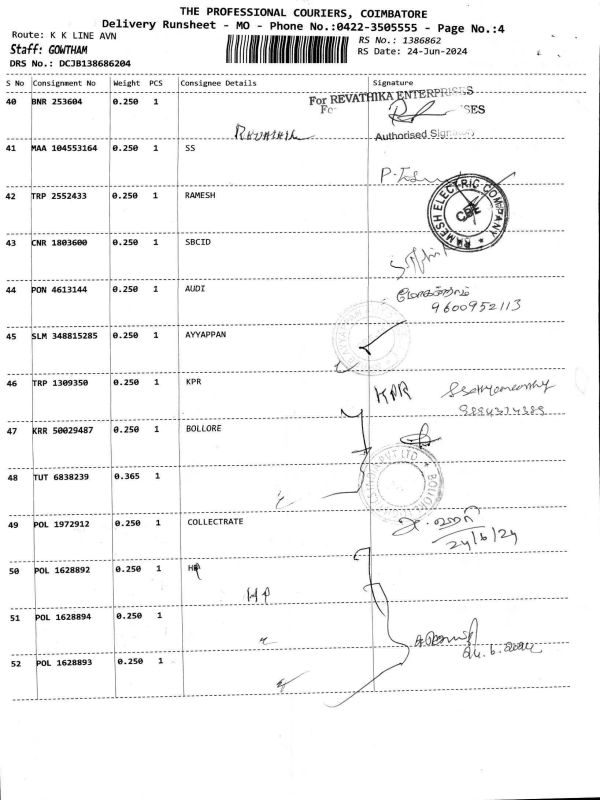 THE PROFESSIONAL COURIERS, COIMBATORE
Delivery Runsheet - MO - Phone No.:0422-3505555 - Page No.:4
Route: K K LINE AVN
RS No.: 1386862
Staff: GOWTHAM
RS Date: 24-Jun-2024
DRS No.: DCJB138686204
S No Consignment No Weight PCS Consignee Details Signature
40 BNR 253604 0.250 1 For REVATHIKA ENTERPRISES
Authorised
41 MAA 104553164 0.250 1 SS
42 TRP 2552433 0.250 1 RAMESH
RAMESH ELECTRIC COMPANY
CBE
43 CNR 1803600 0.250 1 SBCID
44 PON 4613144 0.250 1 AUDI
9600952113
45 SLM 348815285 0.250 1 AYYAPPAN
46 TRP 1309350 0.250 1 KPR KPR
47 KRR 50029487 0.250 1 BOLLORE
48 TUT 6838239 0.365 1
PVT LTD
49 POL 1972912 0.250 1 COLLECTRATE
24/6/24
50 POL 1628892 0.250 1 HP
HP
51 POL 1628894 0.250 1
52 POL 1628893 0.250 1